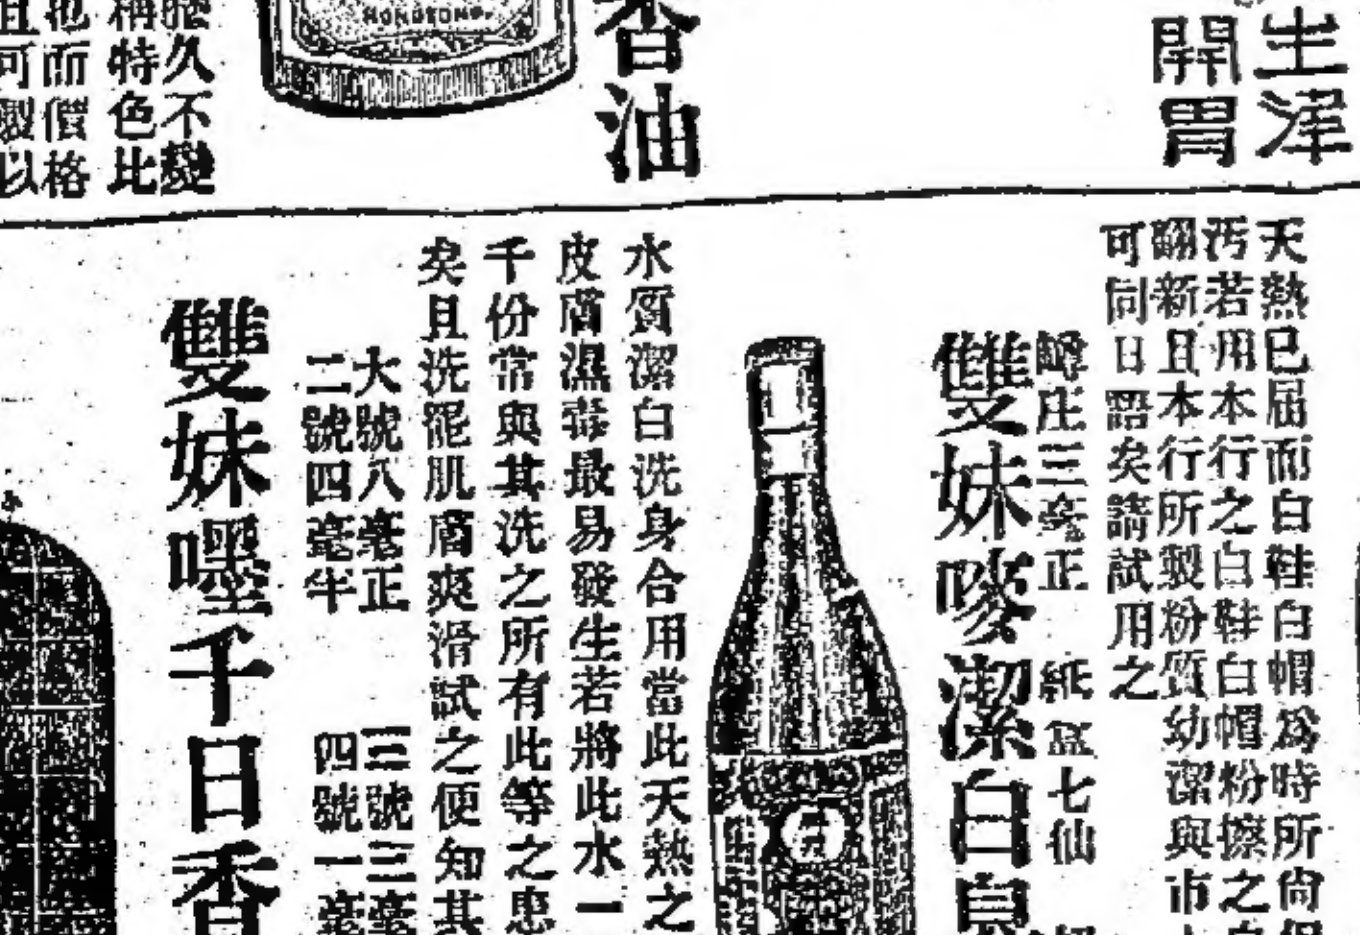 生津
開胃
香油
HONGKONG.
久不變
稱特色比
也而價格
且可製以
天熱已屆而白鞋白帽為時所尚但
汚若用本行之白鞋白帽粉擦之
翻新且本行所製粉質幼潔與市
可同日語矣請試用之
罇庄三毫正 紙盒七仙
雙妹嘜潔白
水質潔白洗身合用當此天熱之
皮膚濕毒最易發生若將此水一
千份常與其洗之所有此等之患
矣且洗罷肌膚爽滑試之便知其
大號八毫正 三號三毫
二號四毫半 四號一毫
雙妹嚜千日香